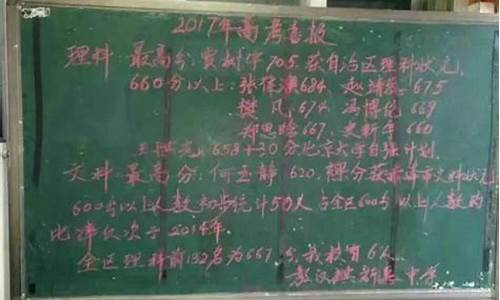 2017年高考喜报
理科:最高分:贾树华 705.获自治区理科状元,
660分以上:张佳 684 赵靖 675
樊凡,674. 冯博伦 669
郑思 667. 史新 660
王 658+30分北京大学自强计划.
文科:最高分:何玉静 620.裸分获赤峰市文科状元
600分以上人数初步统计50人占全区600分以上人数的
比率仅次于2014年.
全区理科前132名为667分,我校有6人
敖汉旗新惠中学